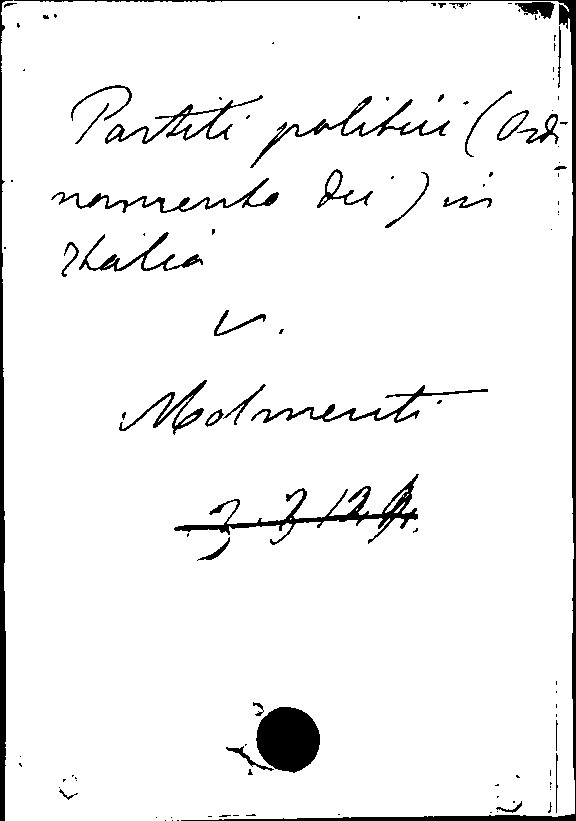 Partiti politici (Ordi
namento dei) in
Italia
v.
Molmenti
3.3.12.